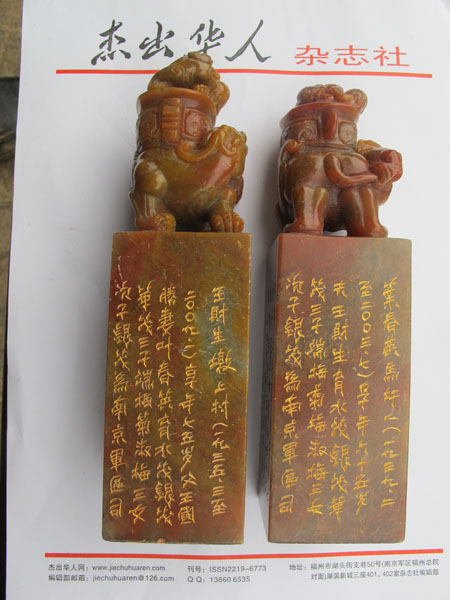 杰出华人 杂志社
王財生墩上村(一九三五、三至
二〇〇九、二)享年七五岁父王國
勝妻叶春英育水筏銀筏
華筏三子瑞梅菊淑梅三女
次子銀筏為南京軍區司
葉春英馬軒人(一九三九、二
至二〇〇三、七)享年六十五岁
夫王財生育水筏銀筏華
筏三子瑞梅菊梅淑梅三女
次子銀筏為南京軍區司
杰出华人网:www.jiechuhuaren.com 刊号:ISSN2219-6773 地址:福州市湖头街支巷50号(南京军区福州总院
编辑部邮箱:jiechuhuaren@126.com QQ:13860 6535 对面)湖滨新城三座401、402室杂志社编辑部